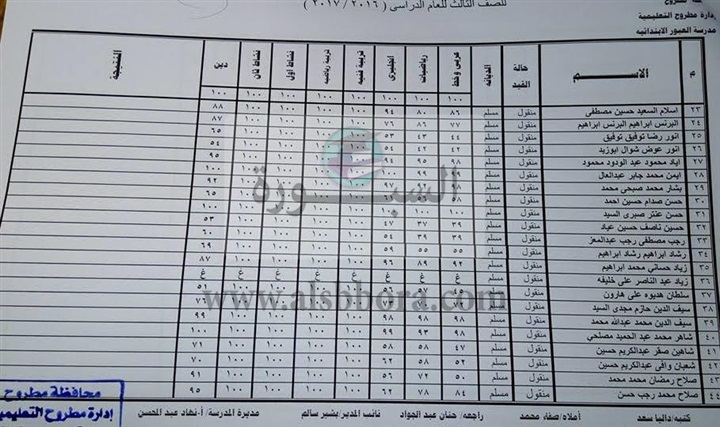 للصف الثالث للعام الدراسى ( ٢٠١٦ / ٢٠١٧ )
إدارة مطروح التعليمية
مدرسة العبور الابتدائيه
م الاســـم حالة القيد الديانه عربى وخط رياضيات انجليزى تربية فنيه تربية رياضيه نشاط اول نشاط ثان دين النتيجه
١٠٠ ١٠٠ ١٠٠ ١٠٠ ١٠٠ ١٠٠ ١٠٠ ١٠٠
٢٣ اسلام السعيد حسين مصطفى منقول مسلم ٨٦ ٨٠ ٩٤ ١٠٠ ١٠٠ ١٠٠ ١٠٠ ٨٨
٢٤ البرنس ابراهيم البرنس ابراهيم منقول مسلم ٧٧ ٨٦ ٧٦ ١٠٠ ١٠٠ ١٠٠ ١٠٠ ٨٧
٢٥ انور رضا توفيق توفيق منقول مسلم ٤٤ ٤٣ ٥٣ ١٠٠ ١٠٠ ١٠٠ ١٠٠ ٦٥
٢٦ انور عوض شوال ابوزيد منقول مسلم ٤٢ ٤٢ ٥٤ ١٠٠ ١٠٠ ١٠٠ ٥٤
٢٧ اياد محمود عبد الودود محمود منقول مسلم ٩٨ ٩٥ ١٠٠ ١٠٠ ٩٥
٢٨ ايمن محمد جابر عبدالعال منقول مسلم ١٠٠ ١٠٠
٢٩ بشار محمد صبحى محمد منقول مسلم ١٠٠ ٩٢
٣٠ حسن صدام حسين احمد منقول مسلم ٥٨ ١٠٠ ٦٥
٣١ حسن عنتر صبرى السيد منقول مسلم ١٠٠ ١٠٠ ١٠٠ ١٠٠
٣٢ حسين ناصف حسين عياد منقول مسلم ٣٩ ٣٧ ٤٧ ١٠٠ ١٠٠ ١٠٠ ١٠٠ ٥٣
٣٣ رجب مصطفى رجب عبدالمعز منقول مسلم ٣٩ ٣٩ ٥٤ ١٠٠ ١٠٠ ١٠٠ ١٠٠ ٦٠
٣٤ رشاد ابراهيم رشاد ابراهيم منقول مسلم ٥٥ ٥٥ ٥٩ ١٠٠ ١٠٠ ١٠٠ ١٠٠ ٦٩
٣٥ زياد حسانى محمد ابراهيم منقول مسلم ٩٦ ٨٩ ٩٢ ١٠٠ ١٠٠ ١٠٠ ١٠٠ ٨٧
٣٦ زياد عبد الناصر على خليفه منقول مسلم غ غ غ غ غ غ غ غ
٣٧ سلطان هديوه على هارون منقول مسلم ٤٥ ٥٧ ٥٦ ١٠٠ ١٠٠ ١٠٠ ١٠٠ ٥١
٣٨ سيف الدين حازم مجدى السيد منقول مسلم ١٠٠ ١٠٠ ٧٦
٣٩ سيف الدين محمد عبدالله محمد منقول مسلم ٩٨ ٩٨ ٩٨ ١٠٠ ١٠٠ ١٠٠ ١٠٠ ٩٩
٤٠ شاهر محمد عبد الحميد مصلحي منقول مسلم ٩٨ ٩٣ ٩٩ ١٠٠ ١٠٠ ١٠٠ ١٠٠ ١٠٠
٤١ شاهين صقر عبدالكريم حسين منقول مسلم ٤٧ ٥٨ ٥٨ ١٠٠ ١٠٠ ١٠٠ ١٠٠ ٧١
٤٢ شعبان وافى عبدالكريم حسين منقول مسلم ٥٢ ٥٨ ٦٢ ١٠٠ ١٠٠ ١٠٠ ١٠٠ ٧٠
٤٣ صلاح رمضان محمد محمد منقول مسلم ٥٠ ٧٢ ٥٦ ١٠٠ ١٠٠ ١٠٠ ١٠٠ ٩١
٤٤ صلاح محمد رجب حسن منقول مسلم ٨٤ ٧٨ ٦٢ ١٠٠ ١٠٠ ١٠٠ ١٠٠ ٩٥
السبورة
www.alsbbora.com
كتبته/داليا سعد أملاه/صفاء محمد راجعه/ حنان عبد الجواد نائب المدير/بشير سالم مديرة المدرسة/أ-نهاد عبد المحسن
محافظة مطروح
إدارة مطروح التعليمية